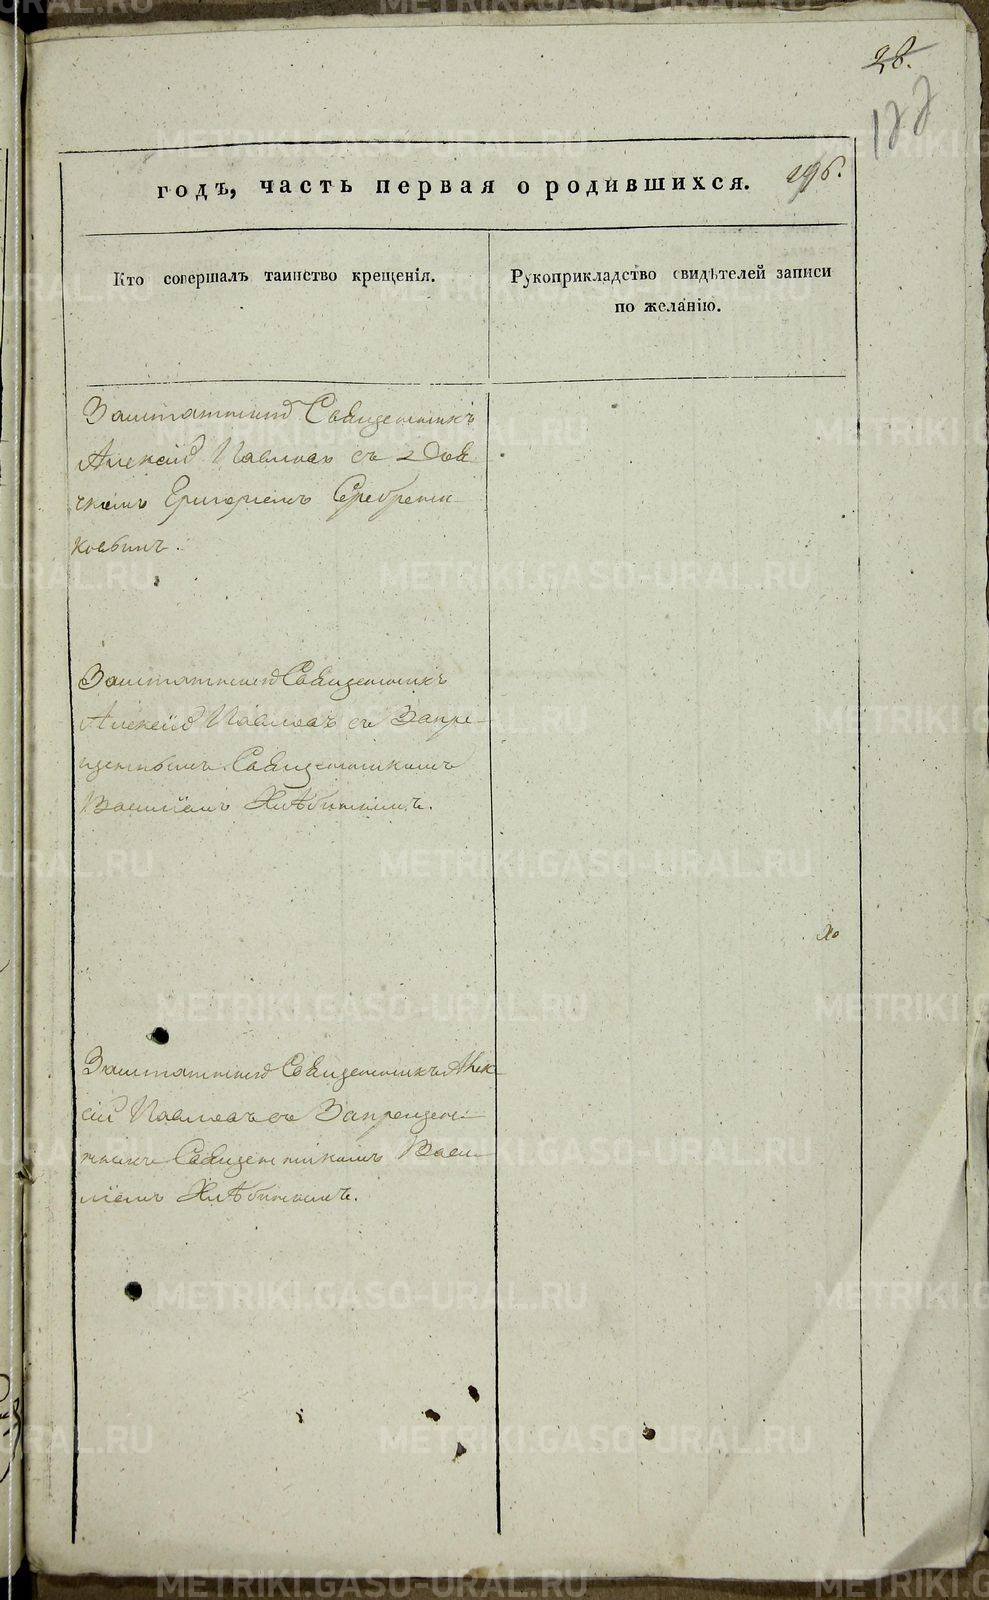 28.
122
196.
годъ, часть первая о родившихся.
Кто совершалъ таинство крещенія.
Рукоприкладство свидѣтелей записи
по желанію.
Заштатный Священникъ
Алексій Павловъ съ Дья
чкомъ Григоріемъ Серебренн
ковымъ.
Заштатный Священникъ
Алексій Павловъ съ Запре-
щеннымъ Священникомъ
Василіемъ Хлѣбинымъ.
Заштатный Священникъ Алек
сій Павловъ съ Запрещен-
нымъ Священникомъ Васи-
ліемъ
METRIKI.GASO-URAL.RU